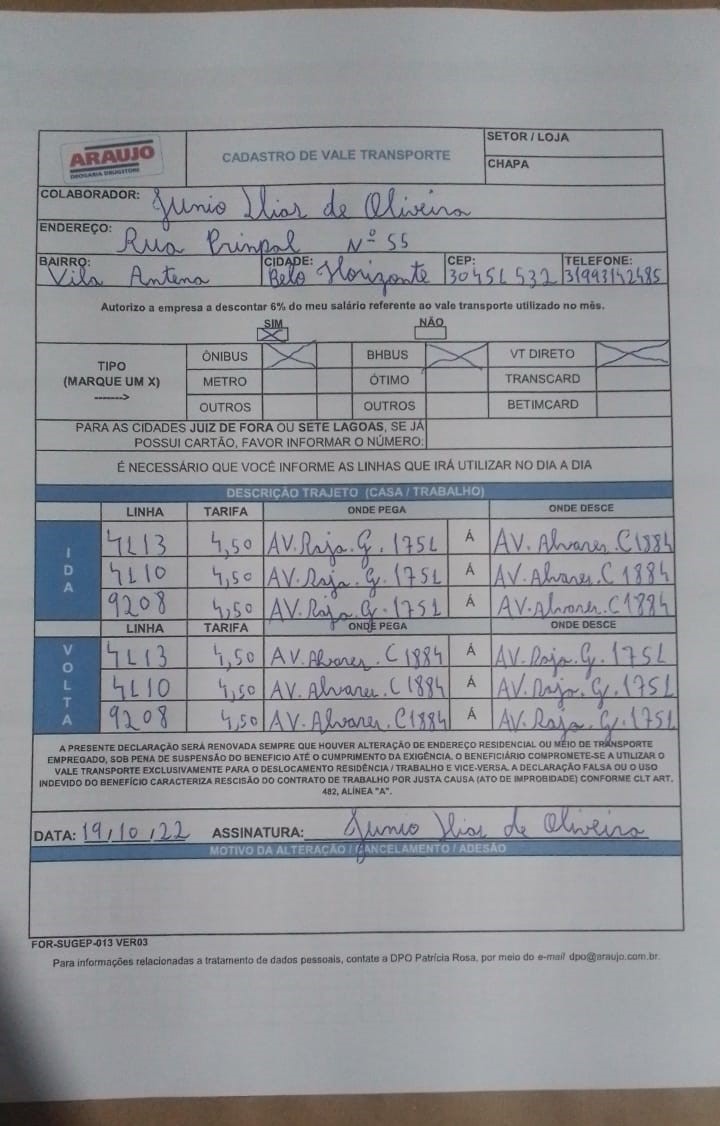 ARAUJO
DROGARIA DRUGSTORE
CADASTRO DE VALE TRANSPORTE
SETOR / LOJA
CHAPA
COLABORADOR: Junio Ilias de Oliveira
ENDEREÇO: Rua Prinpal Nº 55
BAIRRO: Vila Antena CIDADE: Belo Horizonte CEP: 30451532 TELEFONE: 31993142485
Autorizo a empresa a descontar 6% do meu salário referente ao vale transporte utilizado no mês.
SIM X NÃO
TIPO
(MARQUE UM X)
------->
ÔNIBUS X BHBUS X VT DIRETO X
METRO ÓTIMO TRANSCARD
OUTROS OUTROS BETIMCARD
PARA AS CIDADES JUIZ DE FORA OU SETE LAGOAS, SE JÁ
POSSUI CARTÃO, FAVOR INFORMAR O NÚMERO:
É NECESSÁRIO QUE VOCÊ INFORME AS LINHAS QUE IRÁ UTILIZAR NO DIA A DIA
DESCRIÇÃO TRAJETO (CASA / TRABALHO)
LINHA TARIFA ONDE PEGA ONDE DESCE
IDA
4113 4,50 AV. Raja. G. 1751 Á AV. Alvares. C 1884
4110 4,50 AV. Raja. G. 1751 Á AV. Alvares. C 1884
9208 4,50 AV. Raja. G. 1751 Á AV. Alvares. C 1884
LINHA TARIFA ONDE PEGA ONDE DESCE
VOLTA
4113 4,50 AV. Alvares. C 1884 Á AV. Raja. G. 1751
4110 4,50 AV. Alvares. C 1884 Á AV. Raja. G. 1751
9208 4,50 AV. Alvares. C 1884 Á AV. Raja. G. 1751
A PRESENTE DECLARAÇÃO SERÁ RENOVADA SEMPRE QUE HOUVER ALTERAÇÃO DE ENDEREÇO RESIDENCIAL OU MEIO DE TRANSPORTE
EMPREGADO, SOB PENA DE SUSPENSÃO DO BENEFICIO ATÉ O CUMPRIMENTO DA EXIGÊNCIA. O BENEFICIÁRIO COMPROMETE-SE A UTILIZAR O
VALE TRANSPORTE EXCLUSIVAMENTE PARA O DESLOCAMENTO RESIDÊNCIA / TRABALHO E VICE-VERSA. A DECLARAÇÃO FALSA OU O USO
INDEVIDO DO BENEFÍCIO CARACTERIZA RESCISÃO DO CONTRATO DE TRABALHO POR JUSTA CAUSA (ATO DE IMPROBIDADE) CONFORME CLT ART.
482, ALÍNEA "A".
DATA: 19/10/22 ASSINATURA: Junio Ilias de Oliveira
MOTIVO DA ALTERAÇÃO / CANCELAMENTO / ADESÃO
FOR-SUGEP-013 VER03
Para informações relacionadas a tratamento de dados pessoais, contate a DPO Patrícia Rosa, por meio do e-mail dpo@araujo.com.br.